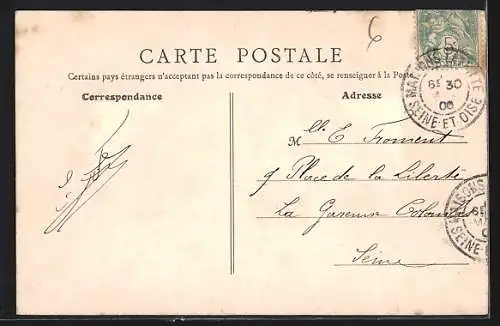 6
CARTE POSTALE
Certains pays étrangers n'acceptant pas la correspondance de ce côté, se renseigner à la Poste
Correspondance
Adresse
Mlle E Froment
9 Place de la Liberté
La Garenne Colombes
Seine
MAISONS LAFFITTE
6E 30
06
SEINE-ET-OISE
MAISONS
6E
SEINE